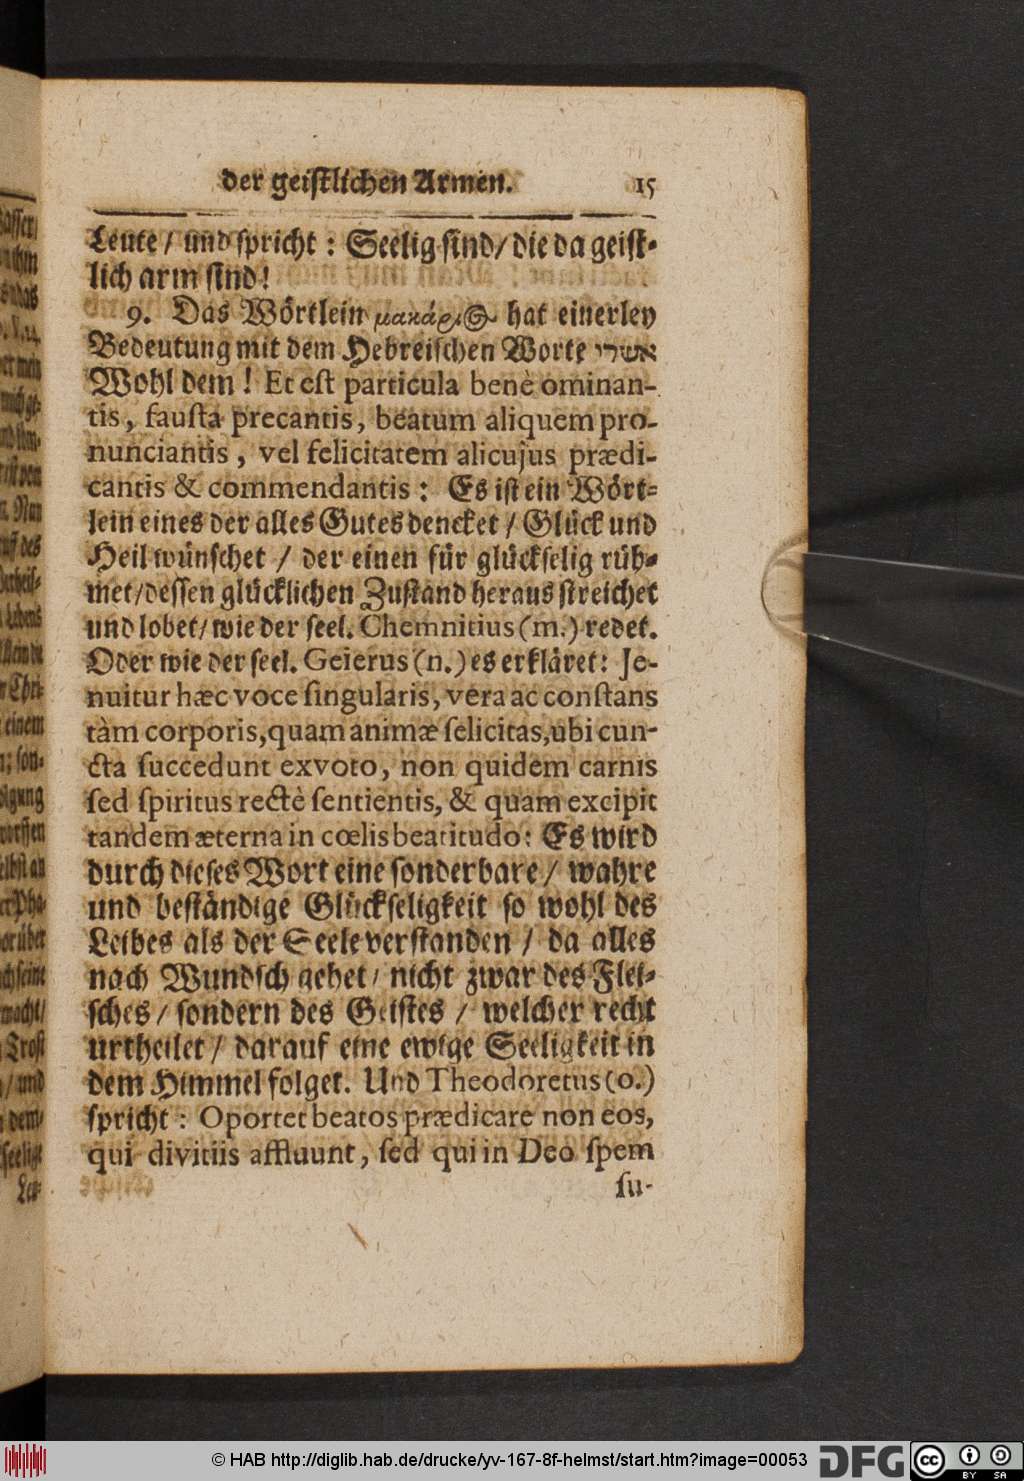 der geistlichen Armen. 15
Leute / und spricht : Seelig sind / die da geist-
lich arm sind!
9. Das Wörtlein μακάριος hat einerley
Bedeutung mit dem Hebreischen Worte אשרי
Wohl dem ! Et est particula benè ominan-
tis, fausta precantis, beatum aliquem pro-
nunciantis, vel felicitatem alicujus prædi-
cantis & commendantis : Es ist ein Wört-
lein eines der alles Gutes dencket / Glück und
Heil wünschet / der einen für glückselig rüh-
met / dessen glücklichen Zustand heraus streichet
und lobet / wie der seel. Chemnitius (m.) redet.
Oder wie der seel. Geierus (n.) es erkläret: Je-
nuitur hæc voce singularis, vera ac constans
tàm corporis, quam animæ felicitas, ubi cun-
cta succedunt ex voto, non quidem carnis
sed spiritus rectè sentientis, & quam excipit
tandem æterna in cœlis beatitudo: Es wird
durch dieses Wort eine sonderbare / wahre
und beständige Glückseligkeit so wohl des
Leibes als der Seele verstanden / da alles
nach Wundsch gehet / nicht zwar des Flei-
sches / sondern des Geistes / welcher recht
urtheilet / darauf eine ewige Seeligkeit in
dem Himmel folget. Und Theodoretus (o.)
spricht : Oportet beatos prædicare non eos,
qui divitiis affluunt, sed qui in Deo spem
su-
© HAB http://diglib.hab.de/drucke/yv-167-8f-helmst/start.htm?image=00053
DFG
cc BY SA